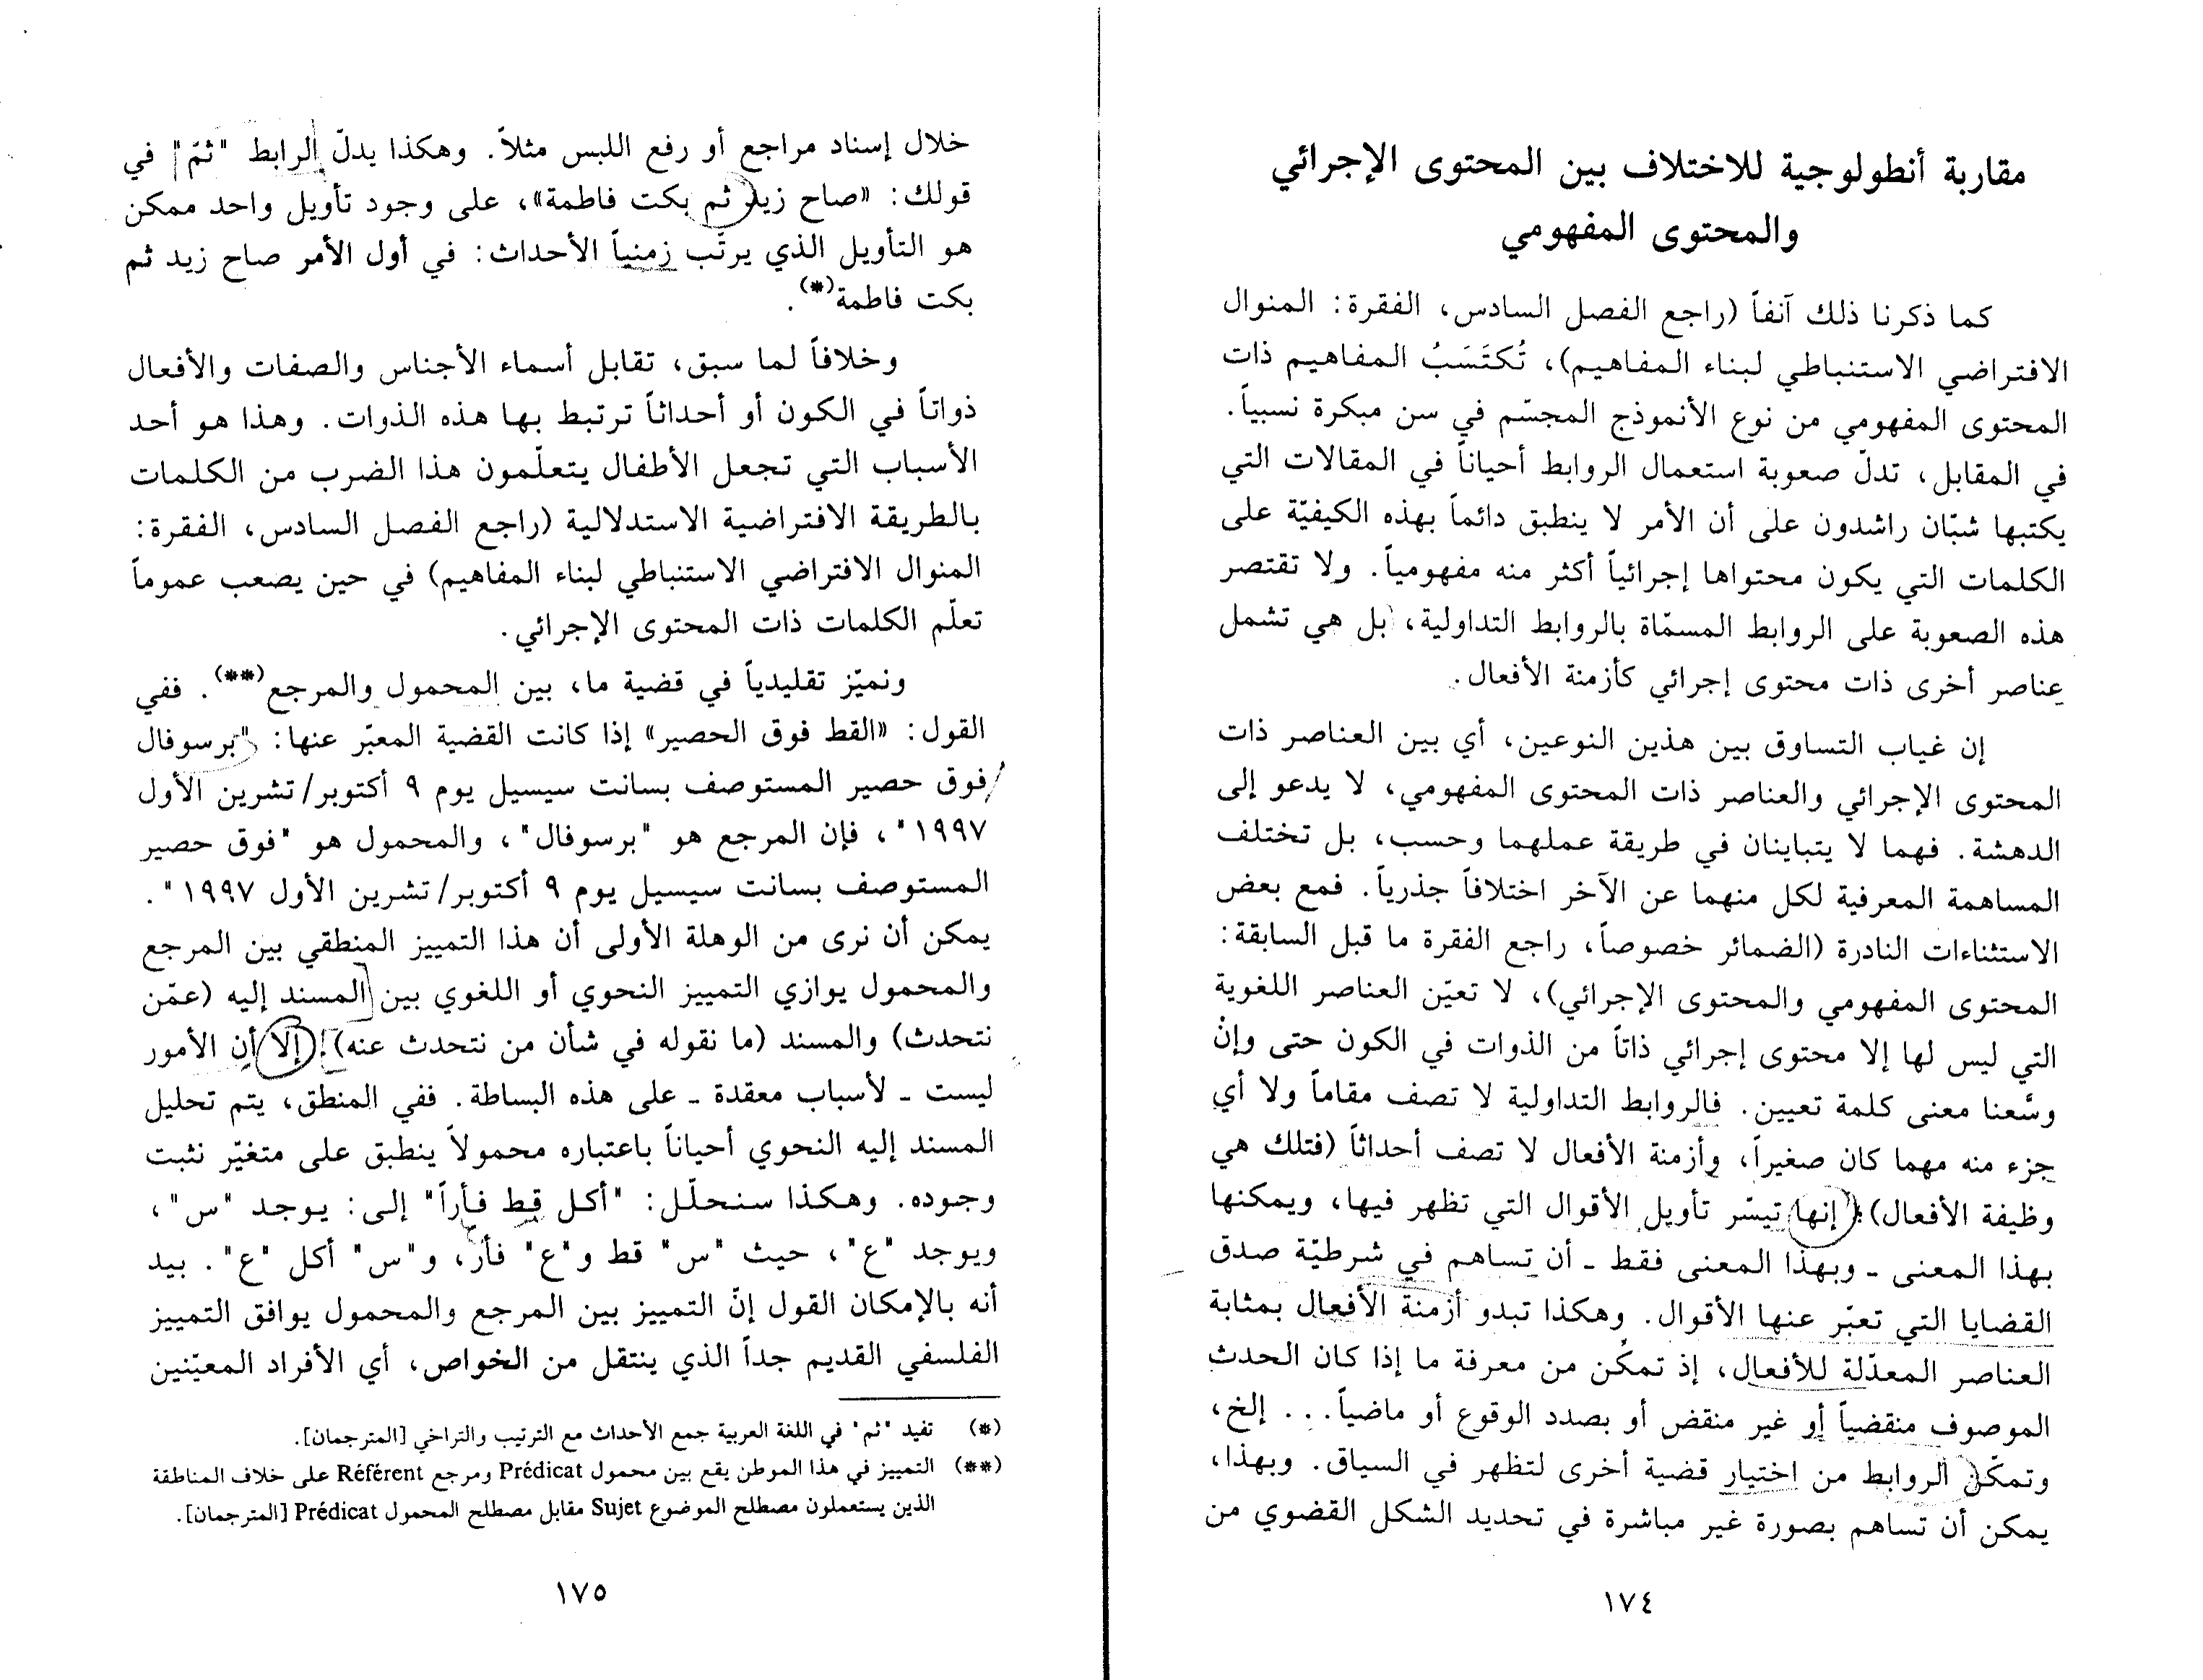 مقاربة أنطولوجية للاختلاف بين المحتوى الإجرائي
والمحتوى المفهومي
كما ذكرنا ذلك آنفاً (راجع الفصل السادس، الفقرة: المنوال
الافتراضي الاستنباطي لبناء المفاهيم)، تُكتَسَبُ المفاهيم ذات
المحتوى المفهومي من نوع الأنموذج المجسّم في سن مبكرة نسبياً.
في المقابل، تدلّ صعوبة استعمال الروابط أحياناً في المقالات التي
يكتبها شبّان راشدون على أن الأمر لا ينطبق دائماً بهذه الكيفيّة على
الكلمات التي يكون محتواها إجرائياً أكثر منه مفهومياً. ولا تقتصر
هذه الصعوبة على الروابط المسمّاة بالروابط التداولية، بل هي تشمل
عناصر أخرى ذات محتوى إجرائي كأزمنة الأفعال.
إن غياب التساوق بين هذين النوعين، أي بين العناصر ذات
المحتوى الإجرائي والعناصر ذات المحتوى المفهومي، لا يدعو إلى
الدهشة. فهما لا يتباينان في طريقة عملهما وحسب، بل تختلف
المساهمة المعرفية لكل منهما عن الآخر اختلافاً جذرياً. فمع بعض
الاستثناءات النادرة (الضمائر خصوصاً، راجع الفقرة ما قبل السابقة:
المحتوى المفهومي والمحتوى الإجرائي)، لا تعيّن العناصر اللغوية
التي ليس لها إلا محتوى إجرائي ذاتاً من الذوات في الكون حتى وإنْ
وسَّعنا معنى كلمة تعيين. فالروابط التداولية لا تصف مقاماً ولا أي
جزء منه مهما كان صغيراً، وأزمنة الأفعال لا تصف أحداثاً (فتلك هي
وظيفة الأفعال): إنها تيسّر تأويل الأقوال التي تظهر فيها، ويمكنها
بهذا المعنى ـ وبهذا المعنى فقط ـ أن تساهم في شرطيّة صدق
القضايا التي تعبّر عنها الأقوال. وهكذا تبدو أزمنة الأفعال بمثابة
العناصر المعدّلة للأفعال، إذ تمكّن من معرفة ما إذا كان الحدث
الموصوف منقضياً أو غير منقض أو بصدد الوقوع أو ماضياً... إلخ،
وتمكّن الروابط من اختيار قضية أخرى لتظهر في السياق. وبهذا،
يمكن أن تساهم بصورة غير مباشرة في تحديد الشكل القضوي من
١٧٤
خلال إسناد مراجع أو رفع اللبس مثلاً. وهكذا يدلّ الرابط "ثمّ" في
قولك: «صاح زيد ثم بكت فاطمة»، على وجود تأويل واحد ممكن
هو التأويل الذي يرتّب زمنياً الأحداث: في أول الأمر صاح زيد ثم
بكت فاطمة(*).
وخلافاً لما سبق، تقابل أسماء الأجناس والصفات والأفعال
ذواتاً في الكون أو أحداثاً ترتبط بها هذه الذوات. وهذا هو أحد
الأسباب التي تجعل الأطفال يتعلّمون هذا الضرب من الكلمات
بالطريقة الافتراضية الاستدلالية (راجع الفصل السادس، الفقرة:
المنوال الافتراضي الاستنباطي لبناء المفاهيم) في حين يصعب عموماً
تعلّم الكلمات ذات المحتوى الإجرائي.
ونميّز تقليدياً في قضية ما، بين المحمول والمرجع(**). ففي
القول: «القط فوق الحصير» إذا كانت القضية المعبّر عنها: "برسوفال
فوق حصير المستوصف بسانت سيسيل يوم ٩ أكتوبر/تشرين الأول
١٩٩٧"، فإن المرجع هو "برسوفال"، والمحمول هو "فوق حصير
المستوصف بسانت سيسيل يوم ٩ أكتوبر/تشرين الأول ١٩٩٧".
يمكن أن نرى من الوهلة الأولى أن هذا التمييز المنطقي بين المرجع
والمحمول يوازي التمييز النحوي أو اللغوي بين المسند إليه (عمّن
نتحدث) والمسند (ما نقوله في شأن من نتحدث عنه). إلا أن الأمور
ليست ـ لأسباب معقدة ـ على هذه البساطة. ففي المنطق، يتم تحليل
المسند إليه النحوي أحياناً باعتباره محمولاً ينطبق على متغيّر نثبت
وجوده. وهكذا سنحلّل: "أكل قط فأراً" إلى: يوجد "س"،
ويوجد "ع"، حيث "س" قط و"ع" فأر، و"س" أكل "ع". بيد
أنه بالإمكان القول إنّ التمييز بين المرجع والمحمول يوافق التمييز
الفلسفي القديم جداً الذي ينتقل من الخواص، أي الأفراد المعيّنين
(*) تفيد "ثم" في اللغة العربية جمع الأحداث مع الترتيب والتراخي [المترجمان].
(**) التمييز في هذا الموطن يقع بين محمول Prédicat ومرجع Référent على خلاف المناطقة
الذين يستعملون مصطلح الموضوع Sujet مقابل مصطلح المحمول Prédicat [المترجمان].
١٧٥